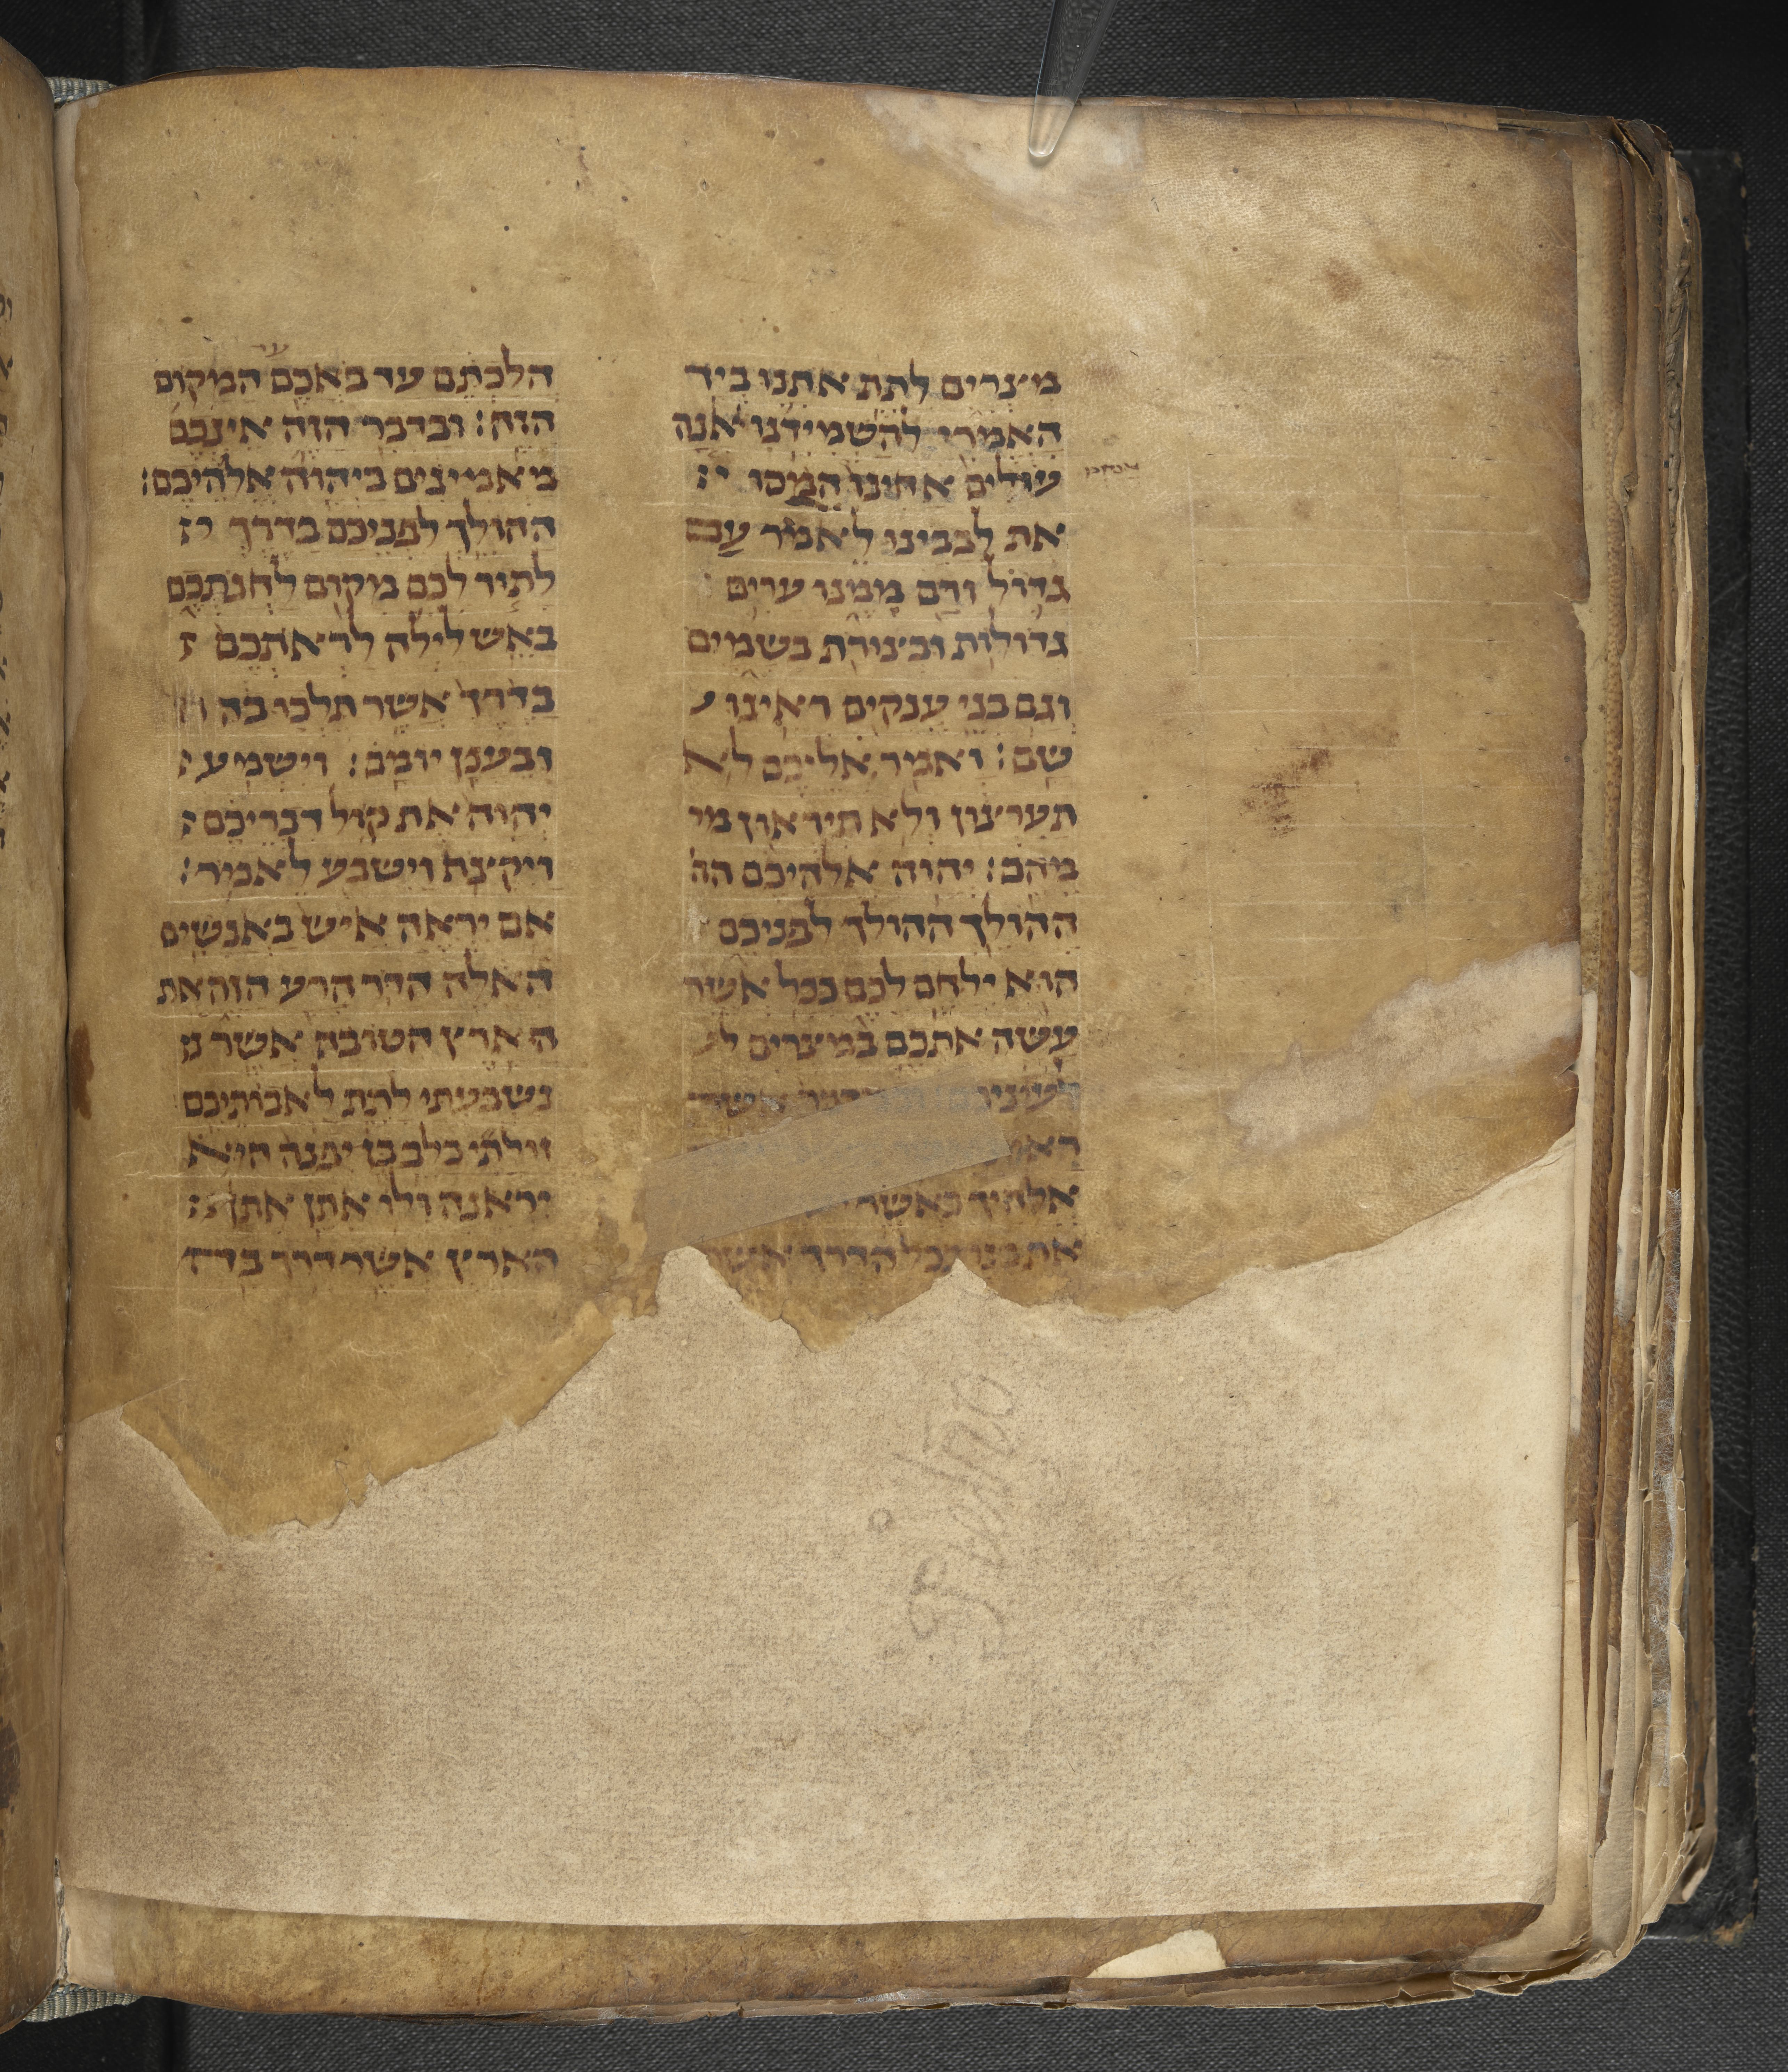 מצרים לתת אתנו ביד
האמרי להשמידנו אנה
עולים אחינו המסו
את לבבינו לאמר עם
גדול ורם ממנו ערים
גדולות ובצורת בשמים
וגם בני ענקים ראינו
שם: ואמר אליכם לא
תערצון ולא תיראון מי
מהם: יהוה אלהיכם הה
ההולך ההולך לפניכם
הוא ילחם לכם ככל אשר
עשה אתכם במצרים לע
לעיניכם אשר
אלהיך כאשר
את בנו בכל הדרך אשר
הלכתם עד באכם המקום
הזה: ובדבר הזה אינכם
מאמינים ביהוה אלהיכם:
ההולך לפניכם בדרך
לתור לכם מקום לחנתכם
באש לילה לראתכם
בדרך אשר תלכו בה
ובענן יומם: וישמע
יהוה את קול דבריכם
ויקצף וישבע לאמר:
אם יראה איש באנשים
האלה הדר הרע הזה את
הארץ הטובה אשר נ
נשבעתי לתת לאבותיכם
זולתי כלב בן יפנה הוא
יראנה ולו אתן את
הארץ אשר דרך בה